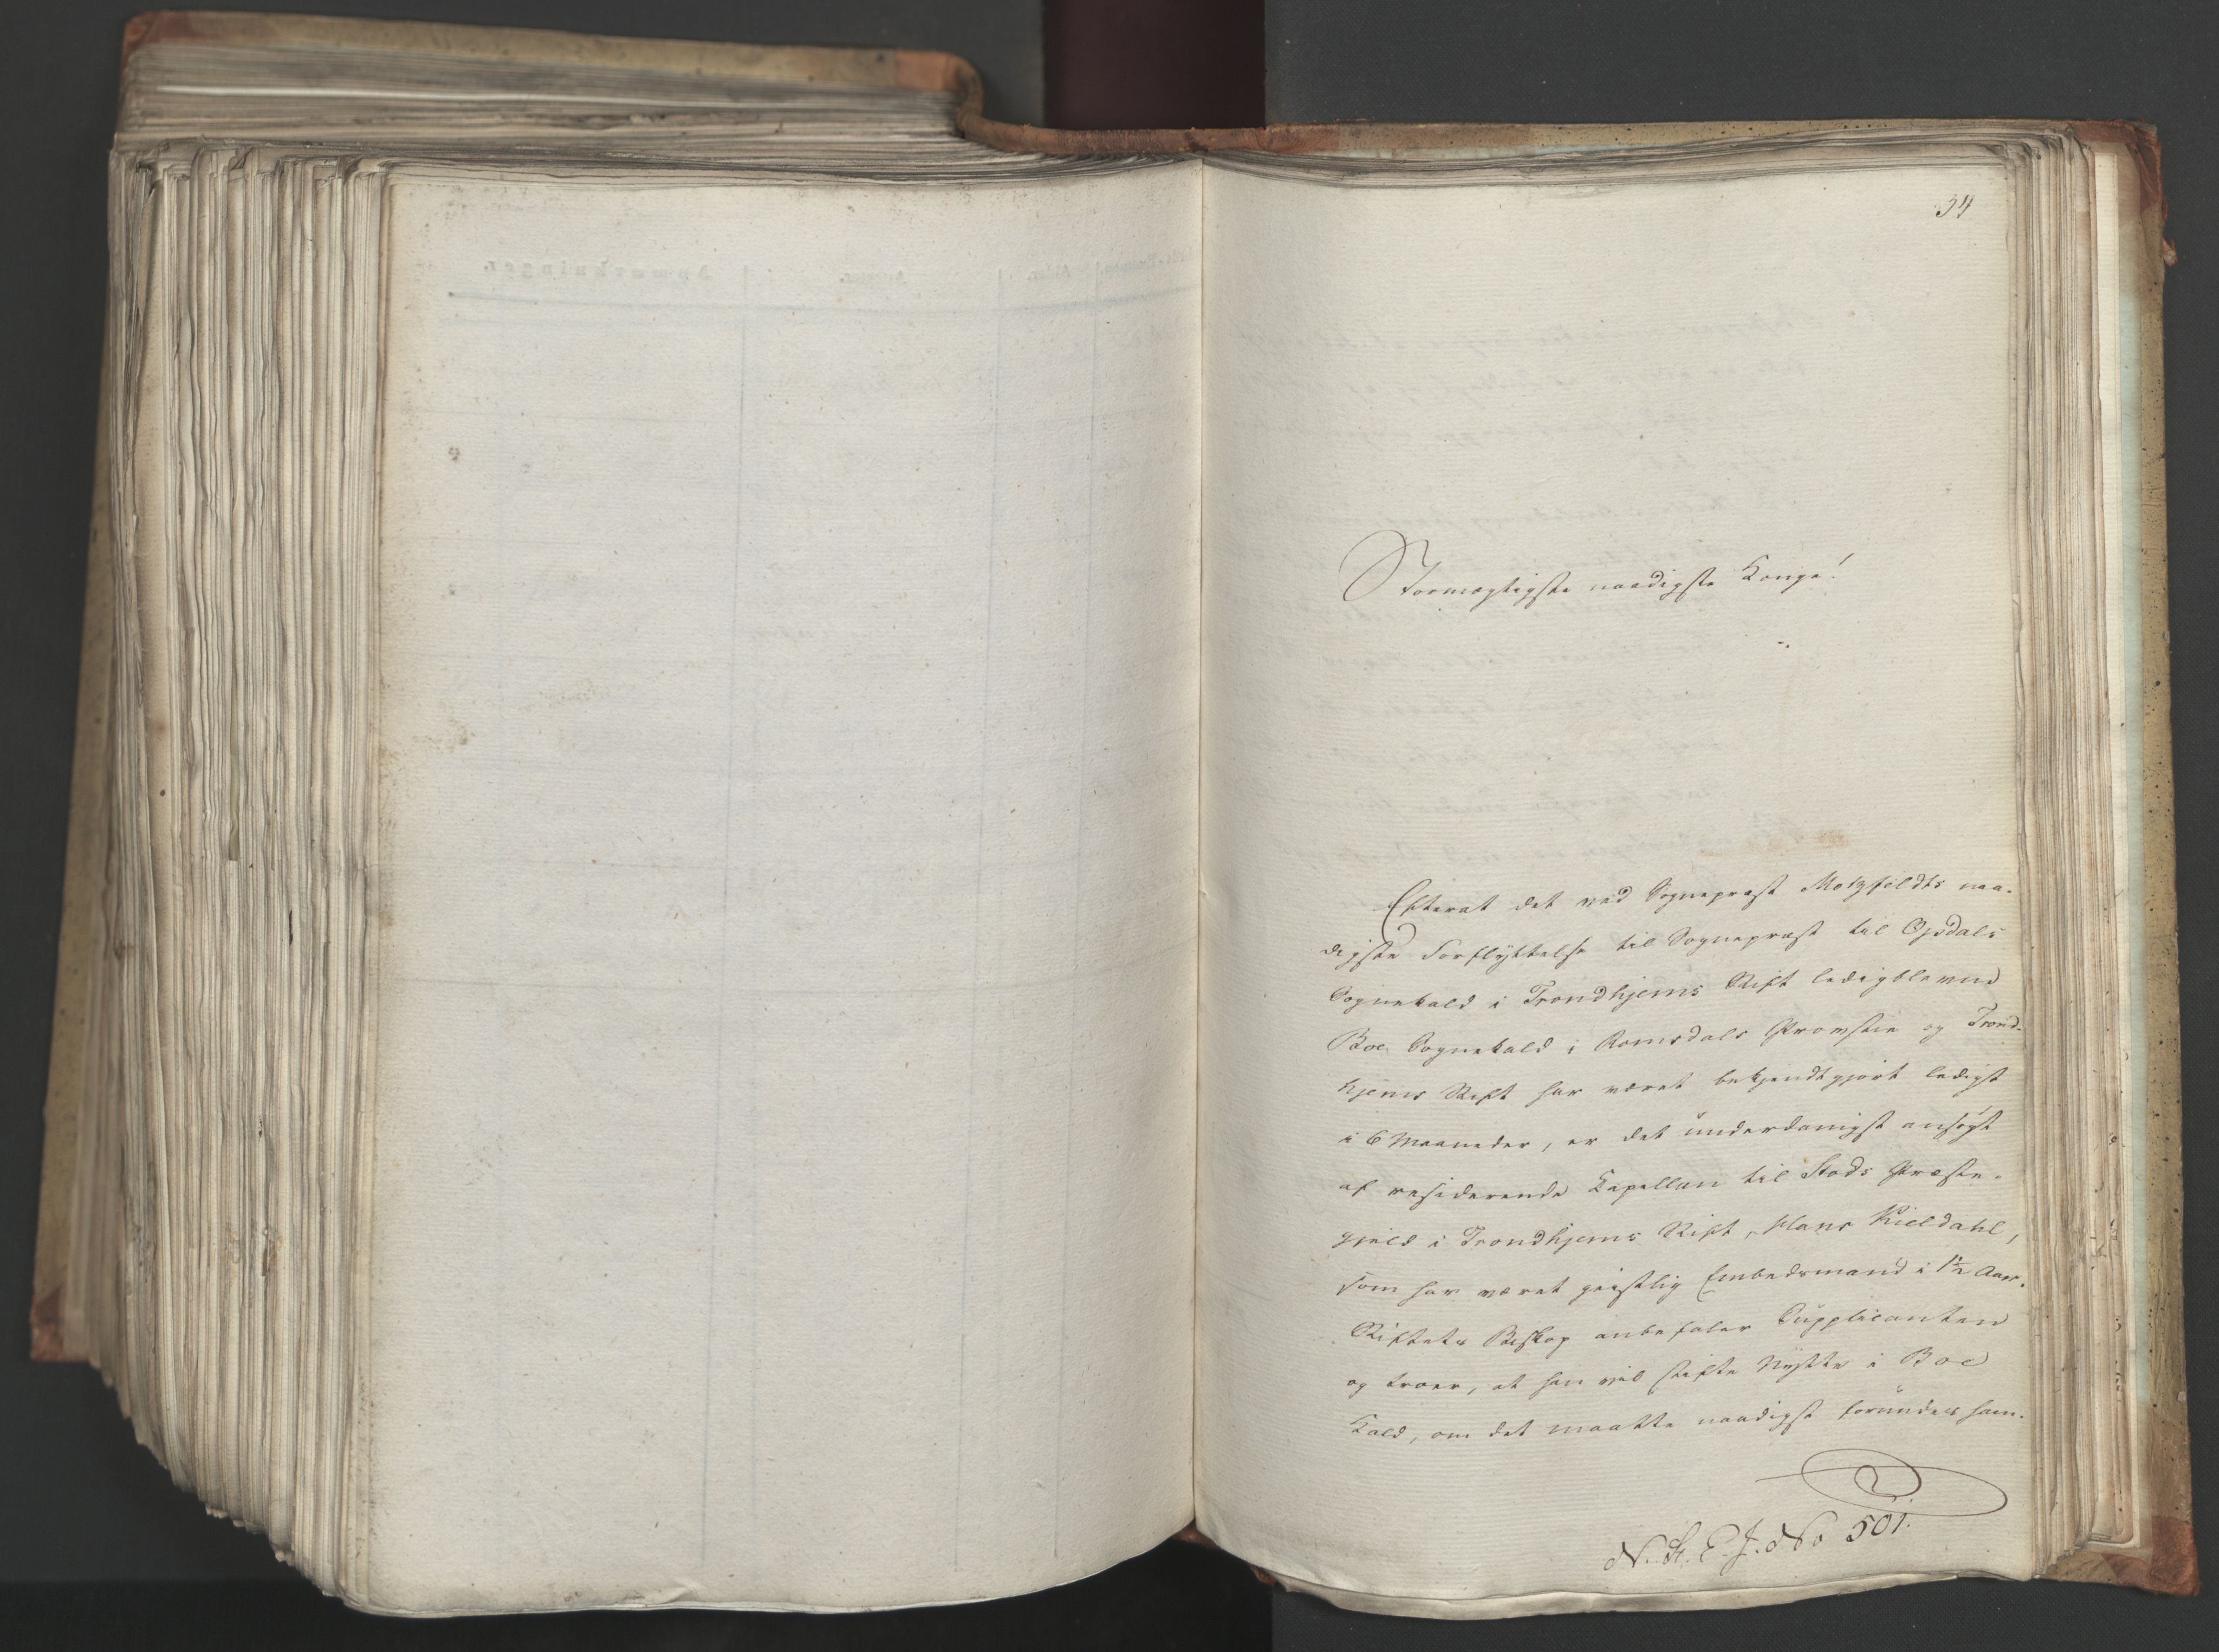 34
Stormægtigste naadigste Konge!
Efterat det ved Sognepræst Motzfeldts naa-
digste Forflyttelse til Sognepræst til Opdals
Sognekald i Trondhjems Stift ledigblevne
Boe Sognekald i Romsdals Provstie og Trond-
hjems Stift har været bekjendtgjort ledigt
i 6 Maaneder, er det underdanigst ansøgt
af residerende Kapellan til Stods Præste-
gjeld i Trondhjems Stift, Hans Kieldahl,
som har været geistlig Embedsmand i 1½ Aar.
Stiftets Biskop anbefaler Supplicanten
og troer, at han vil stifte Nytte i Boe
Kald, om det maatte naadigst forundes ham.
N. St. E. J. No 501.